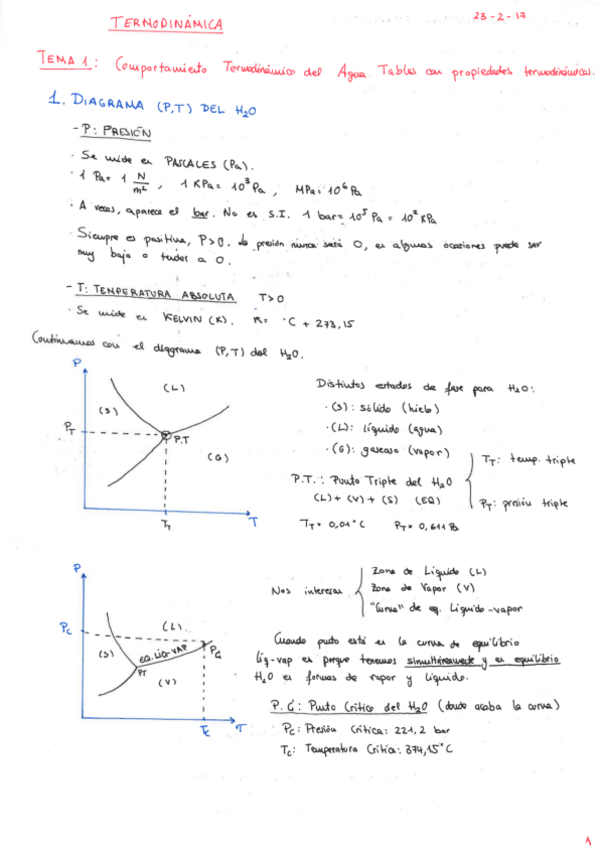 TERMODINÁMICA
23-2-17
TEMA 1: Comportamiento Termodinámico del Agua. Tablas con propiedades termodinámicas.
1. DIAGRAMA (P,T) DEL H₂O
- P: PRESIÓN
· Se mide en PASCALES (Pa).
· 1 Pa = 1 N/m², 1 KPa = 10³ Pa, MPa = 10⁶ Pa
· A veces, aparece el bar. No es S.I. 1 bar = 10⁵ Pa = 10² KPa
· Siempre es positiva, P>0. La presión nunca será 0, en algunas ocasiones puede ser
muy baja o tender a 0.
- T: TEMPERATURA ABSOLUTA T>0
· Se mide en KELVIN (K). K = °C + 273,15
Continuamos con el diagrama (P,T) del H₂O.
P
(L)
(S)
P_T
P.T
(G)
T_T
T
Distintos estados de fase para H₂O:
· (S): sólido (hielo)
· (L): líquido (agua)
· (G): gaseoso (vapor)
P.T.: Punto Triple del H₂O
(L) + (V) + (S) (EQ)
T_T: temp. triple
P_T: presión triple
T_T = 0,01°C P_T = 0,611 Pa
P
P_C
(L)
(S)
EQ. LIQ-VAP
P_G
PT
(V)
T_C
T
Nos interesan
Zona de Líquido (L)
Zona de Vapor (V)
"Curva" de eq. Líquido-vapor
Cuando punto está en la curva de equilibrio
líq-vap es porque tenemos simultáneamente y en equilibrio
H₂O en formas de vapor y líquido.
P. G: Punto Crítico del H₂O (donde acaba la curva)
P_C: Presión Crítica: 221,2 bar
T_C: Temperatura Crítica: 374,15°C
1